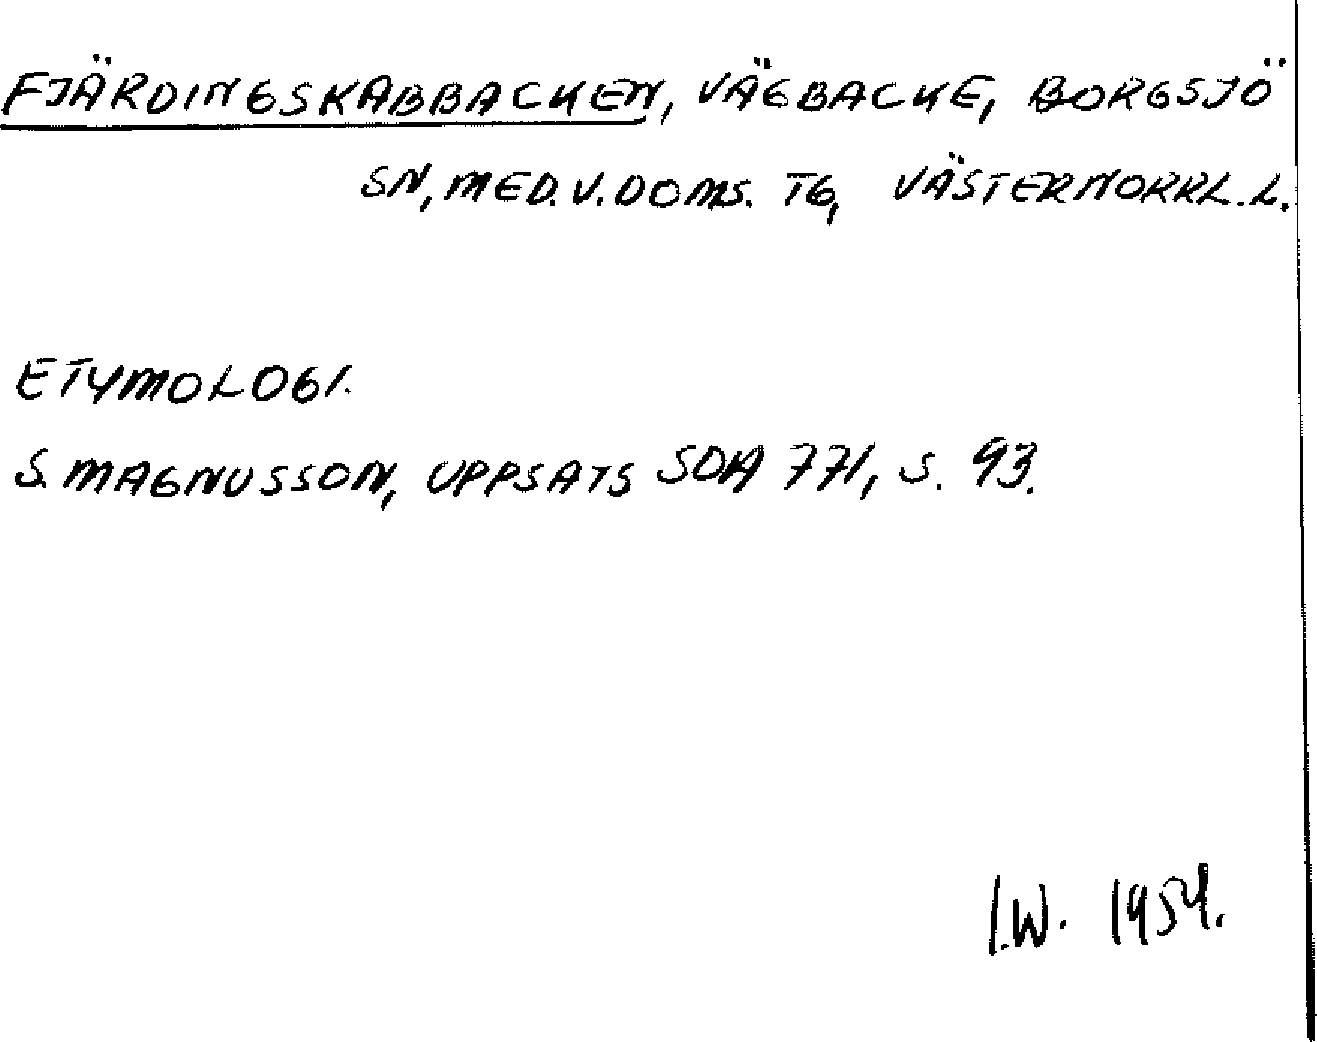 FJÄRDINGSKABBACKEN, VÄGBACKE, BORGSJÖ
SN, MED. V. DOMS. TG, VÄSTERNORRL. L.
ETYMOLOGI.
S. MAGNUSSON, UPPSATS SOA 771, S. 93.
I.W. 1954.